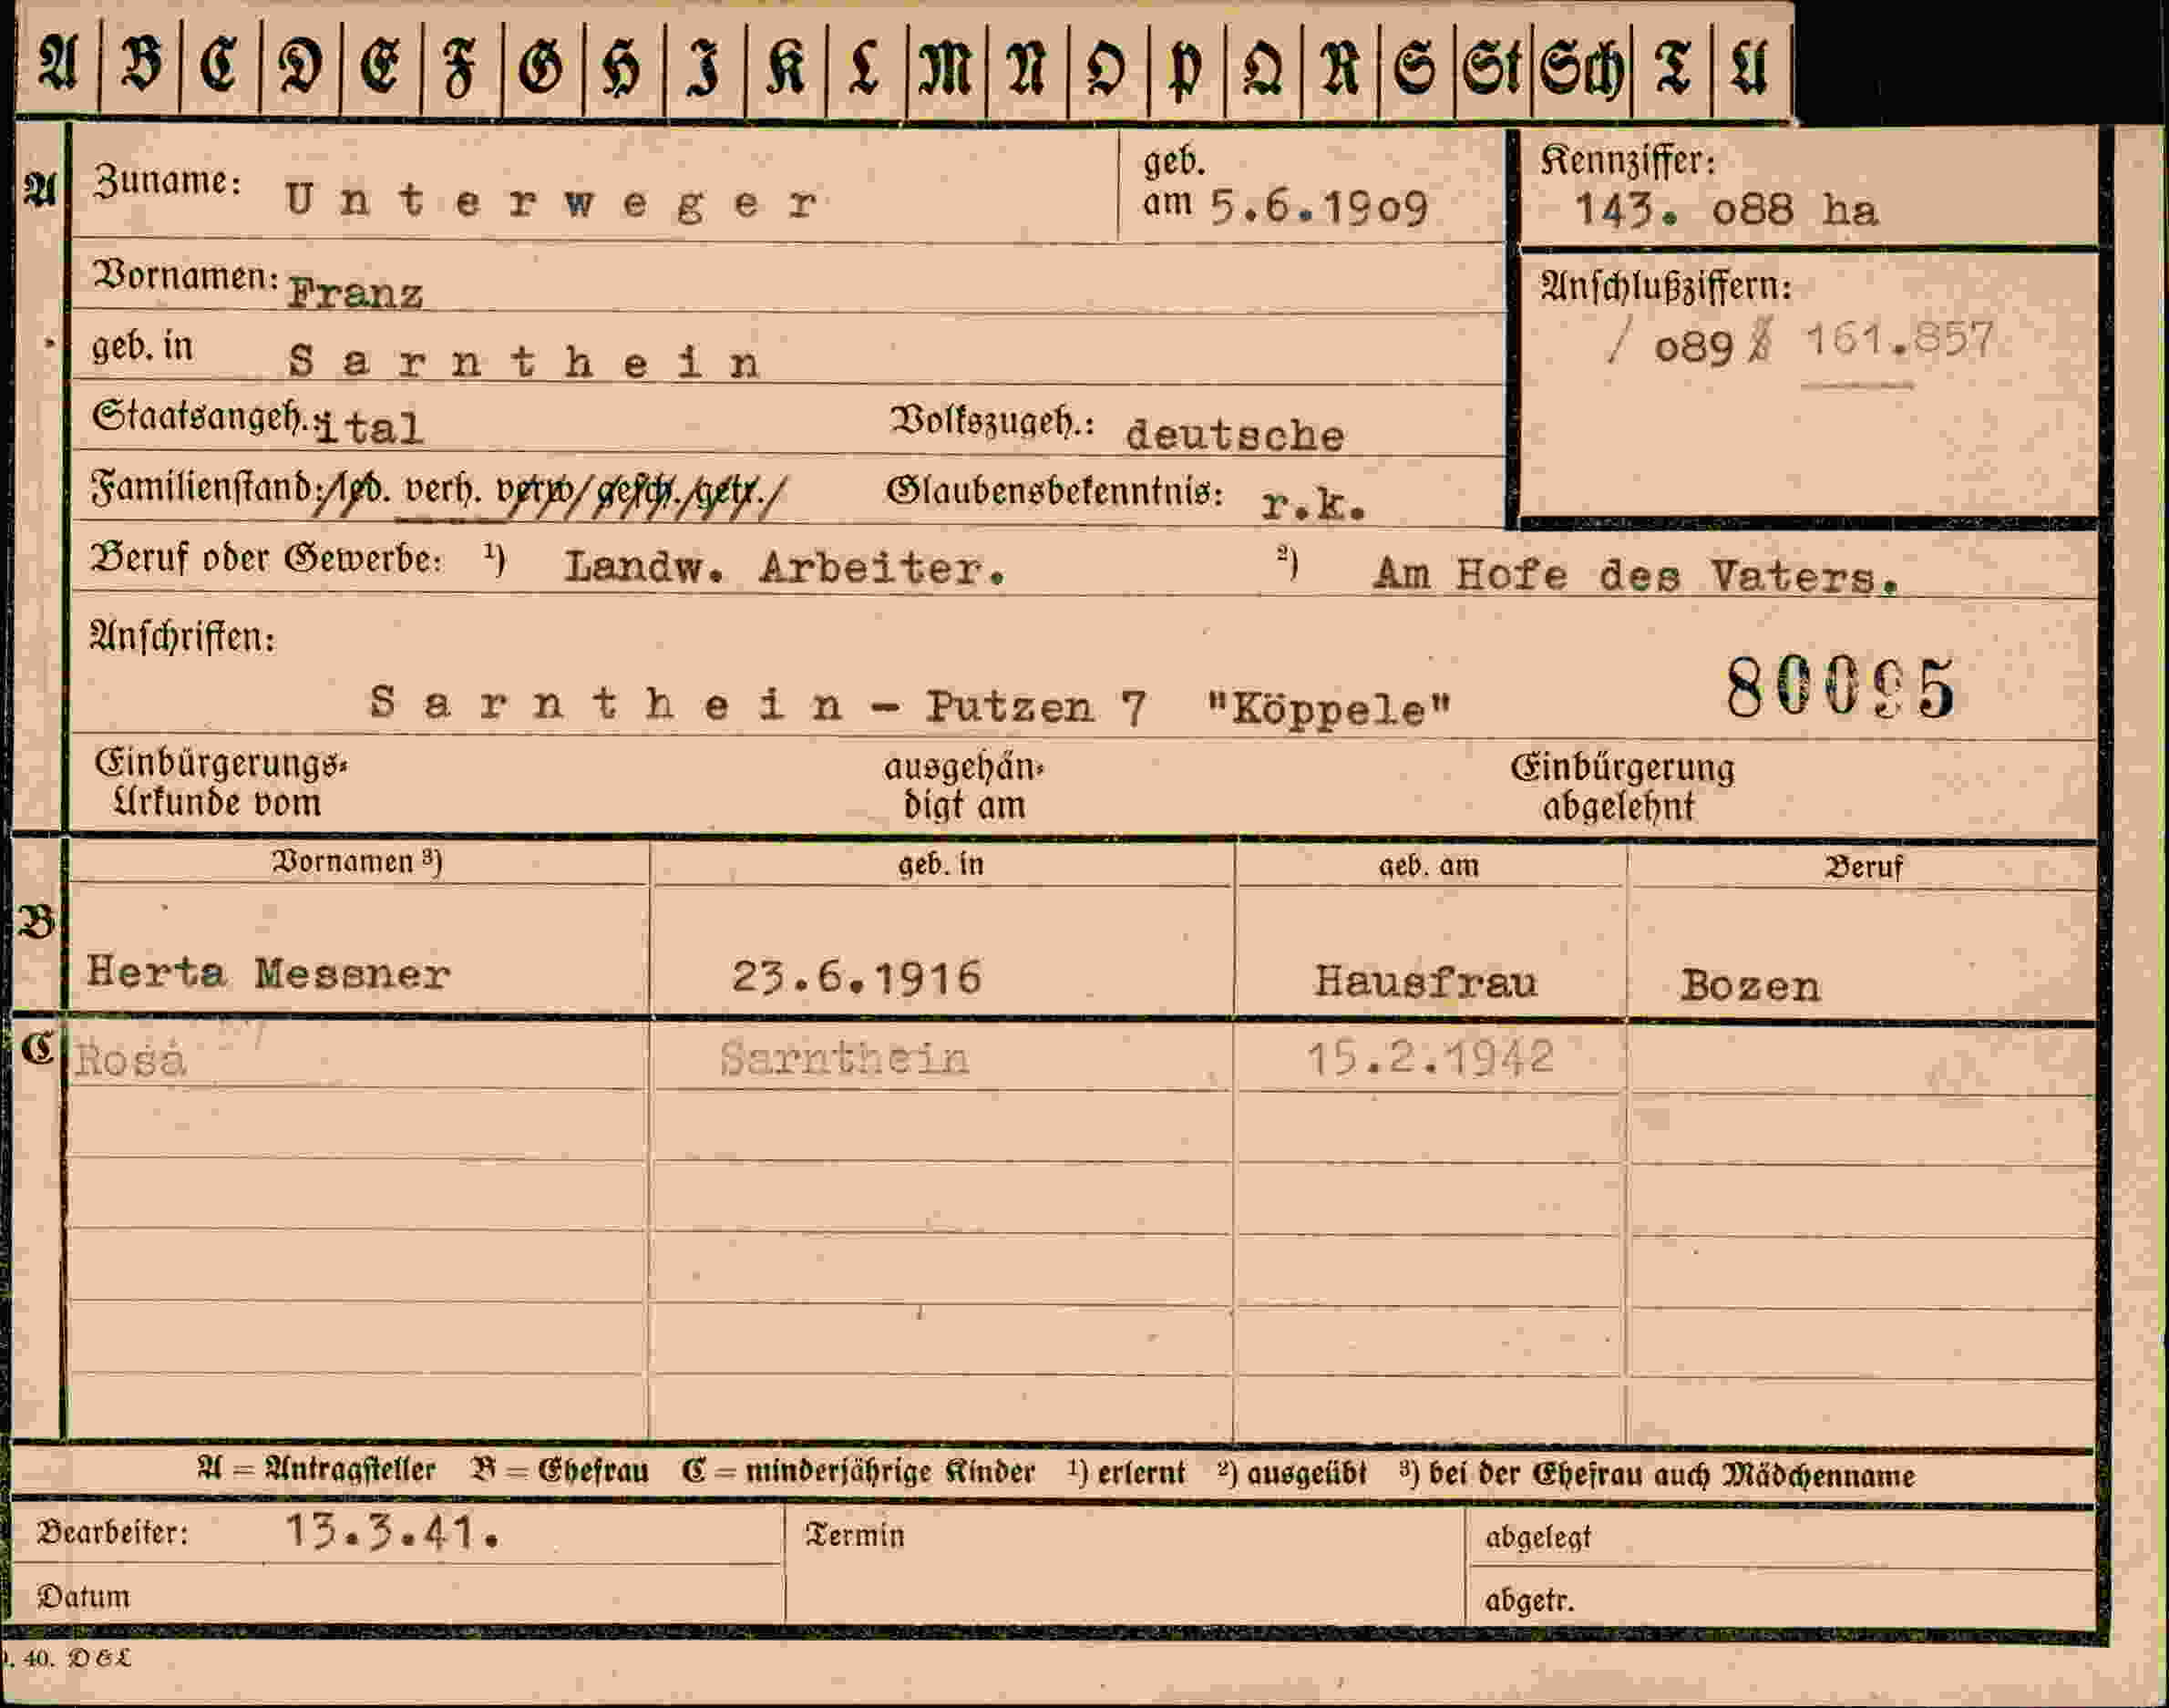 A B C D E F G H I K L M N O P Q R S St Sch T U
A Zuname: Unterweger geb. am 5.6.1909 Kennziffer: 143. o88 ha
Vornamen: Franz Anschlußziffern:
geb. in Sarnthein / o89 161.857
Staatsangeh.: ital Volkszugeh.: deutsche
Familienstand: led. verh. verw/ gesch./getr./ Glaubensbekenntnis: r.k.
Beruf oder Gewerbe: 1) Landw. Arbeiter. 2) Am Hofe des Vaters.
Anschriften:
Sarnthein - Putzen 7 "Köppele" 80095
Einbürgerungs= ausgehän= Einbürgerung
Urkunde vom digt am abgelehnt
Vornamen 3) geb. in geb. am Beruf
B
Herta Messner 23.6.1916 Hausfrau Bozen
C Rosa Sarnthein 15.2.1942
A = Antragsteller B = Ehefrau C = minderjährige Kinder 1) erlernt 2) ausgeübt 3) bei der Ehefrau auch Mädchenname
Bearbeiter: 13.3.41. Termin abgelegt
Datum abgetr.
40. D&L